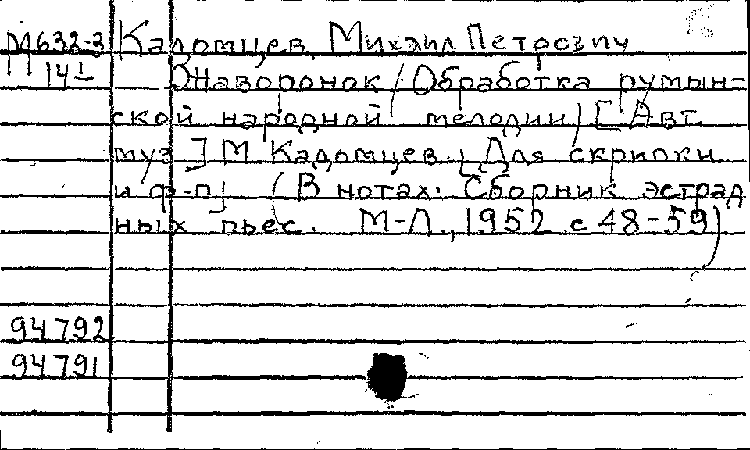 М632-3 Кадомцев, Михаил Петрович
14 1 Жаворонок /Обработка румын=
ской народной мелодии/ [Авт.
муз.] М. Кадомцев. [Для скрипки
и ф-п] (В нотах: Сборник эстрад
ных пьес. М-Л., 1952 с 48-59)
94792
94791